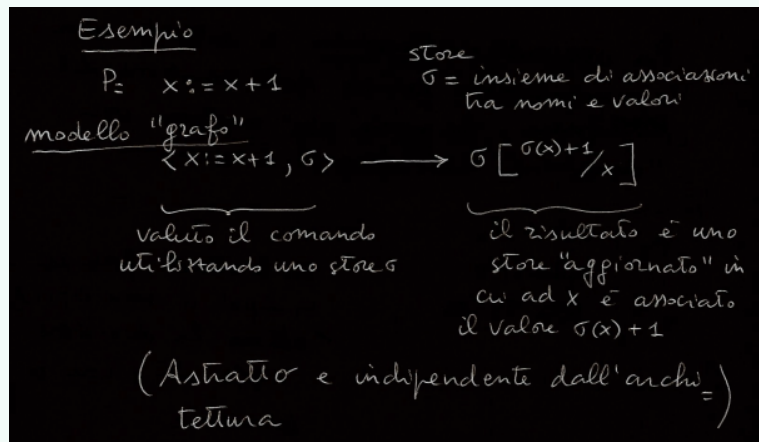 Esempio
P= x:= x+1
store
σ = insieme di associazioni
tra nomi e valori
modello "grafo"
< x:= x+1, σ > ⟶ σ [ σ(x)+1/x ]
valuto il comando
utilizzando uno store σ
il risultato è uno
store "aggiornato" in
cui ad x è associato
il valore σ(x)+1
(Astratto e indipendente dall'archi=
tettura)